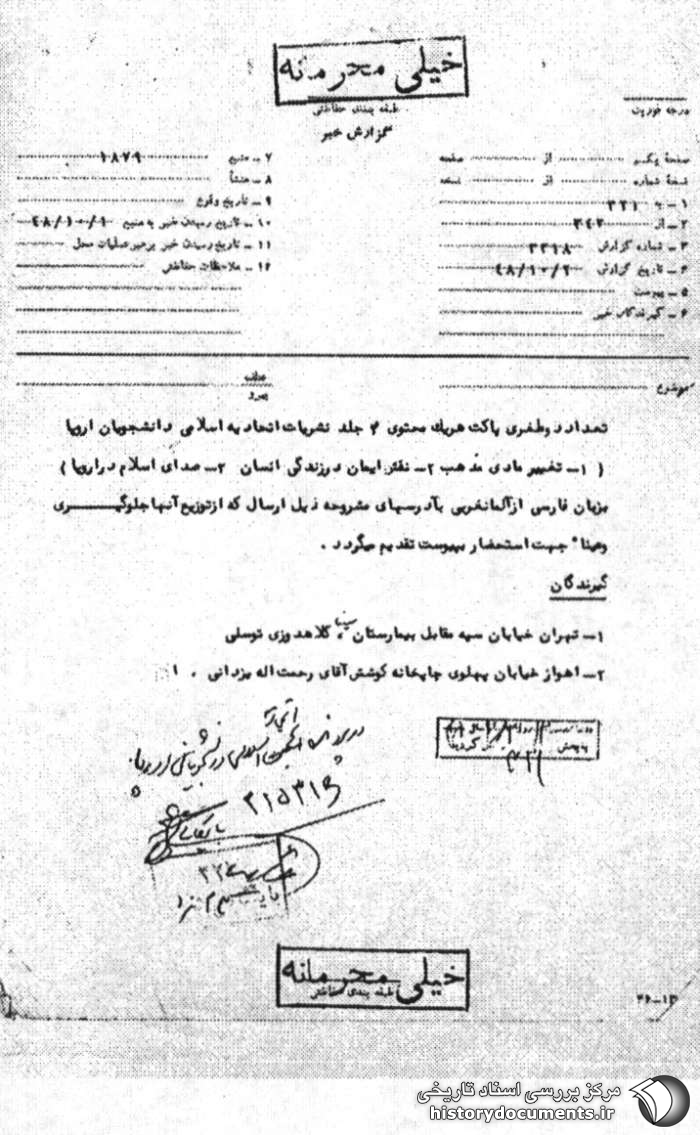 خیلی محرمانه
طبقه بندی حفاظتی
گزارش خبر
درجه فوریت
صفحه یکم از صفحه
نسخه شماره از نسخه
۱ - به ۳۲۱
۲ - از ۳۴۲
۳ - شماره گزارش ۳۳۱۸
۴ - تاریخ گزارش ۴۸/۱۰/۲
۵ - پیوست
۶ - گیرندگان خبر
۷ - منبع ۱۸۷۹
۸ - منشأ
۹ - تاریخ وقوع
۱۰ - تاریخ رسیدن خبر به منبع ۴۸/۱۰/۱
۱۱ - تاریخ رسیدن خبر برهبر عملیات محل
۱۲ - ملاحظات حفاظتی
موضوع
تعداد دو طغری پاکت هریک محتوی ۲ جلد نشریات اتحادیه اسلامی دانشجویان اروپا
( ۱- تفسیر مادی مذهب ۲- نقش ایمان در زندگی انسان ۳- صدای اسلام در اروپا )
بزبان فارسی از آلمانغربی بآدرسهای مشروحه ذیل ارسال که از توزیع آنها جلوگیـــری
وعیناً جهت استحضار بپیوست تقدیم میگردد .
گیرندگان
۱- تهران خیابان سپه مقابل بیمارستان سینا، کلاهدوزی توسلی
۲- اهواز خیابان پهلوی چاپخانه کوشش آقای رحمت اله یزدانی . ۱
در پرونده
۳۱۵۳۱۶
بایگانی
خیلی محرمانه
طبقه بندی حفاظتی
مرکز بررسی اسناد تاریخی
historydocuments.ir